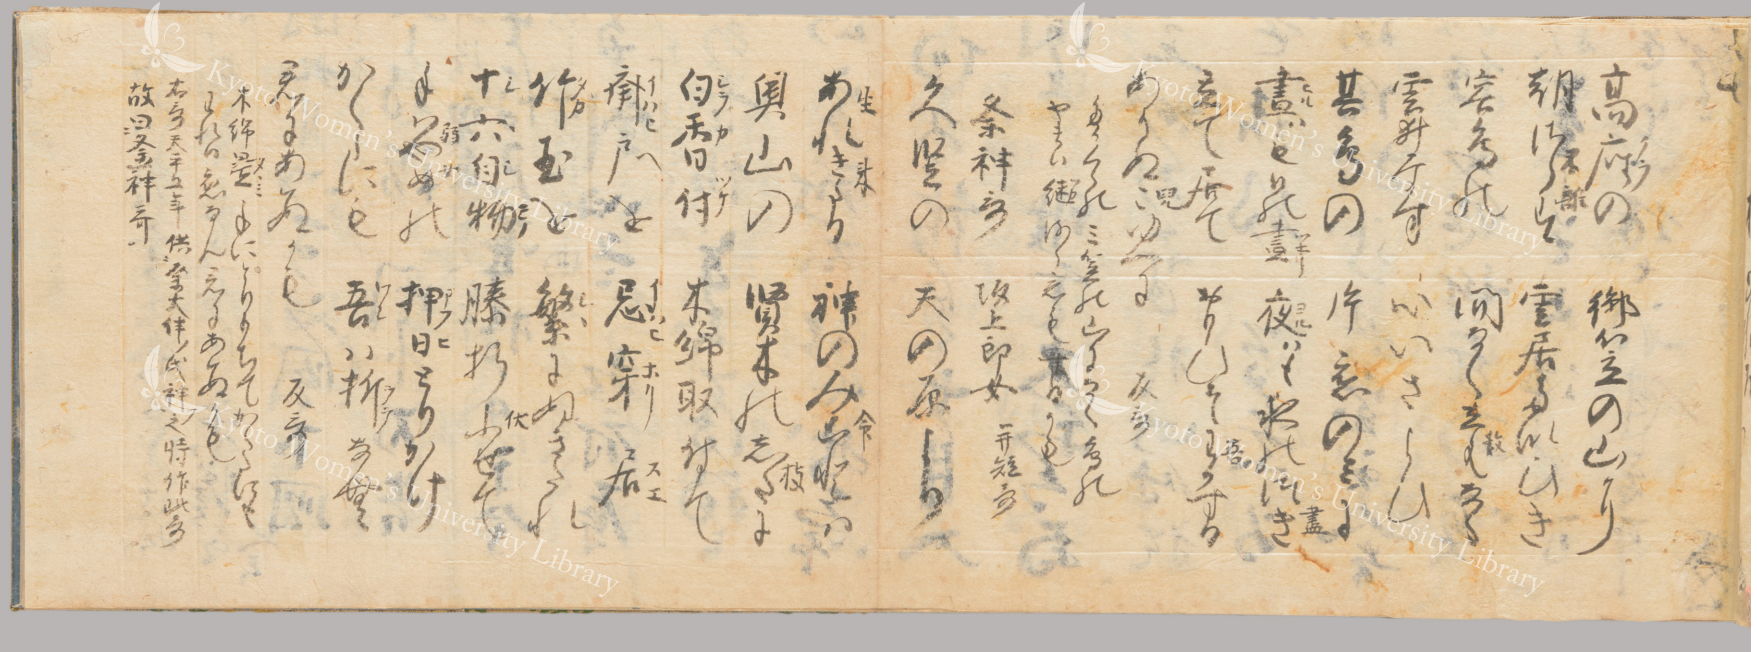 高座の　御笠の山に
朝さらす　雲居たなひき
容鳥の　間なくしはなく
雲井なす　心いさよひ
其鳥の　片恋のみに
晝はも　日の晝　夜はも　夜のつき
立て居て　おもひそわかする
あはぬ児ゆゑに　反哥
高くらの三笠の山になく鳥の
やまは継
祭神哥　坂上郎女　并短哥
久堅の　天の原より
あれきたる　神のみことは
奥山の　賢木の志たに
白香付　木綿取付て
斎戸を　忌穿居
竹玉を　繁にぬきたれ
十六自物　膝折ふせて
手弱めの　押日とりかけ
かくたにも　吾ハ折なむ
君にあはぬかも　反哥
木綿畳手にとりもちてかくたにも
われは恋なん君にあはぬかも
右哥天平五年供祭大伴氏神之時作此哥
故曰祭神哥
Kyoto Women's University Library
Kyoto Women's University Library
Kyoto Women's University Library
Kyoto Women's University Library